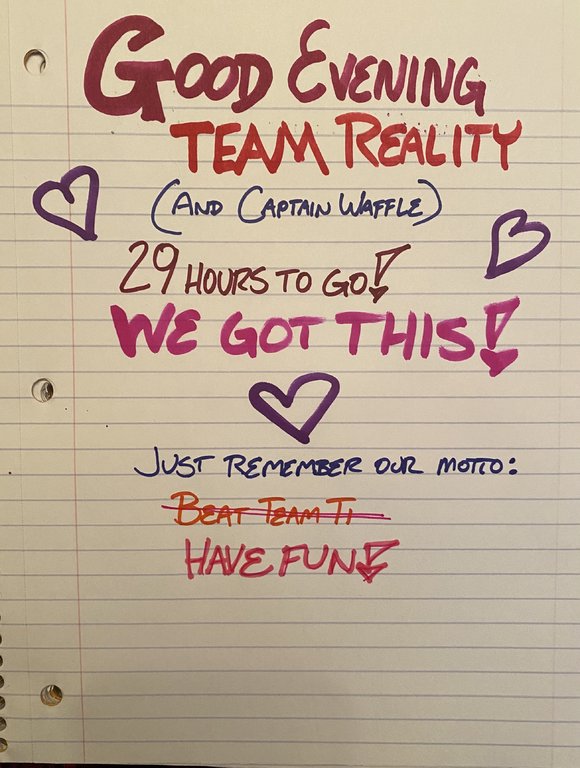 GOOD EVENING
TEAM REALITY
(AND CAPTAIN WAFFLE)
29 HOURS TO GO!
WE GOT THIS!
JUST REMEMBER OUR MOTTO:
BEAT TEAM TI
HAVE FUN!